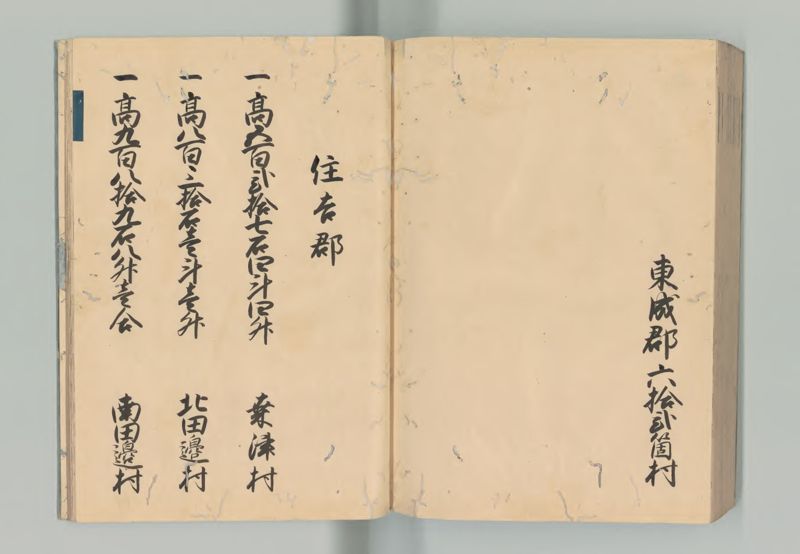 東成郡六拾弐箇村
住吉郡
一高六百弐拾七石四斗四升 桑津村
一高八百三拾石壱斗壱升 北田邊村
一高九百八拾九石八升壱合 南田邊村